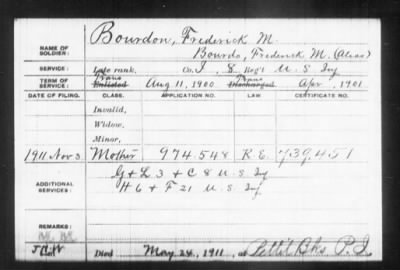 NAME OF SOLDIER: Bourdon, Frederick M.
Bourdo, Frederick M. (Alias)
SERVICE: Late rank, Co. I, 8 Reg't U. S. Inf
TERM OF SERVICE: Trans Enlisted Aug 11, 1900 Trans Discharged Apr , 1901
DATE OF FILING. CLASS. APPLICATION NO. LAW CERTIFICATE NO.
Invalid,
Widow,
Minor,
1911 Nov 3. Mother 974.548 R.E. 739.451
ADDITIONAL SERVICES: G + L 3 + C 8 U. S. Inf
H 6 + F 21 U. S. Inf
REMARKS:
Died May 24, 1911, at Pettit Bks P. I.